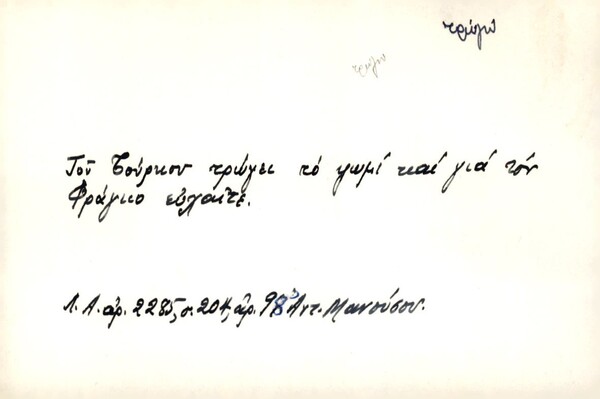 τρώγω
τρώγω
Τοῦ Τούρκου τρώγει τό ψωμί καί γιά τόν
Φράγκο εὐλαῖτε.
Λ. Α. ἀρ. 2285, σ. 204, ἀρ. 983 Ἀντ. Μανούσου.